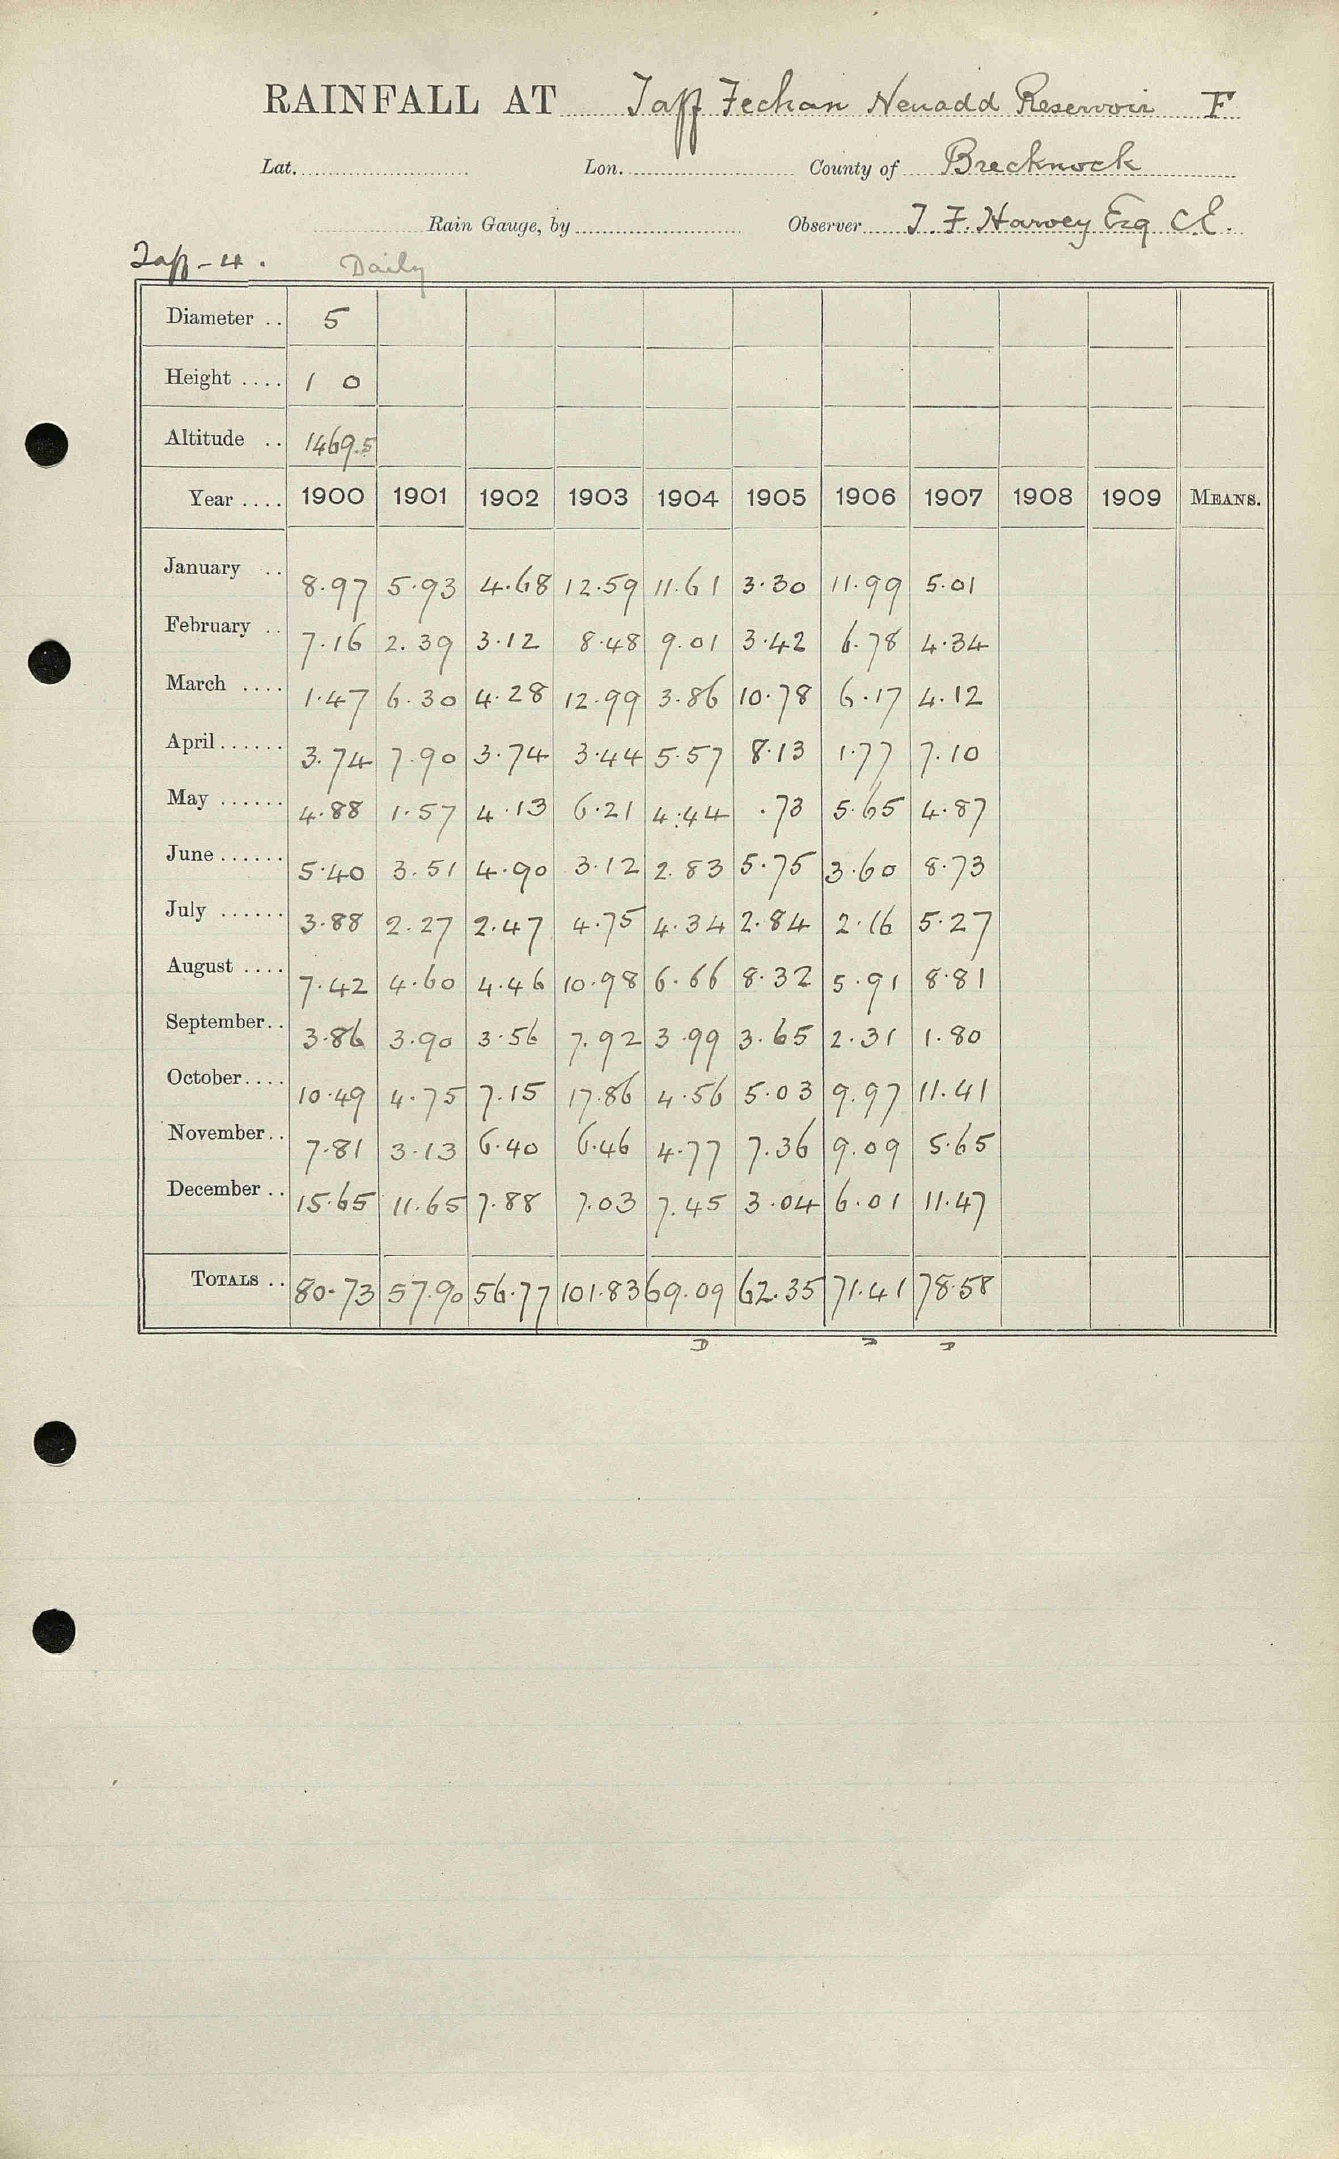 RAINFALL AT Taff Fechan Neuadd Reservoir F
Lat. Lon. County of Brecknock
Rain Gauge, by Observer T. F. Harvey Esq C.E.
Taff - 4. Daily
Diameter .. 5
Height .... 1 0
Altitude .. 1469.5
Year .... 1900 1901 1902 1903 1904 1905 1906 1907 1908 1909 MEANS.
January .. 8.97 5.93 4.68 12.59 11.61 3.30 11.99 5.01
February .. 7.16 2.39 3.12 8.48 9.01 3.42 6.78 4.34
March .... 1.47 6.30 4.28 12.99 3.86 10.78 6.17 4.12
April...... 3.74 7.90 3.74 3.44 5.57 8.13 1.77 7.10
May ...... 4.88 1.57 4.13 6.21 4.44 .73 5.65 4.87
June...... 5.40 3.51 4.90 3.12 2.83 5.75 3.60 8.73
July ...... 3.88 2.27 2.47 4.75 4.34 2.84 2.16 5.27
August .... 7.42 4.60 4.46 10.98 6.66 8.32 5.91 8.81
September.. 3.86 3.90 3.56 7.92 3.99 3.65 2.31 1.80
October.... 10.49 4.75 7.15 17.86 4.56 5.03 9.97 11.41
November.. 7.81 3.13 6.40 6.46 4.77 7.36 9.09 5.65
December .. 15.65 11.65 7.88 7.03 7.45 3.04 6.01 11.47
TOTALS .. 80.73 57.90 56.77 101.83 69.09 62.35 71.41 78.58
D D D